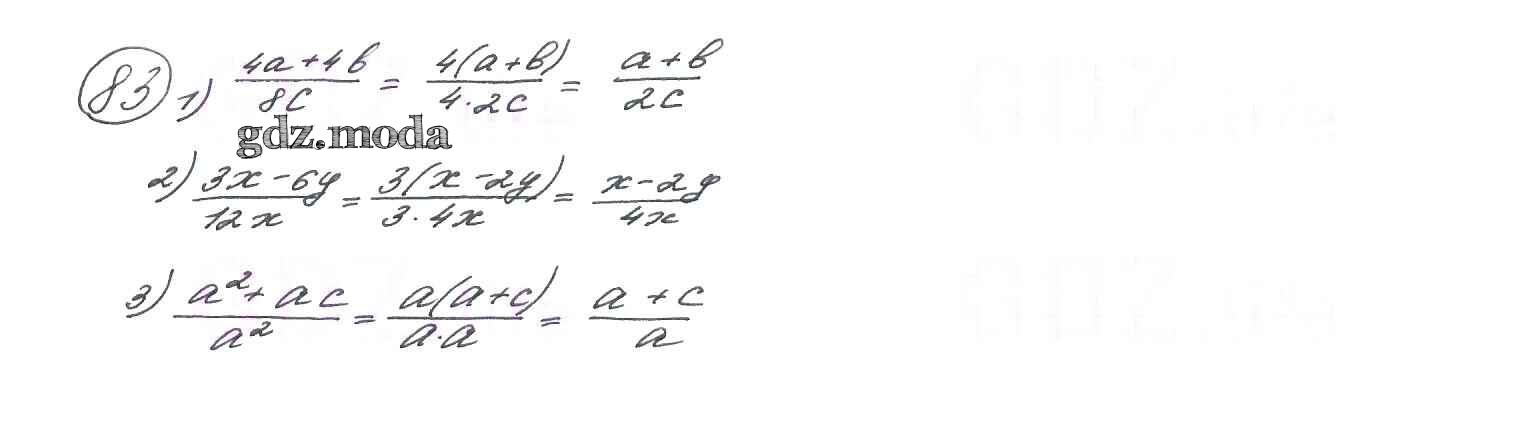 83 1) (4a+4b)/(8c) = (4(a+b))/(4·2c) = (a+b)/(2c)
gdz.moda
2) (3x-6y)/(12x) = (3(x-2y))/(3·4x) = (x-2y)/(4x)
3) (a²+ac)/(a²) = (a(a+c))/(a·a) = (a+c)/(a)